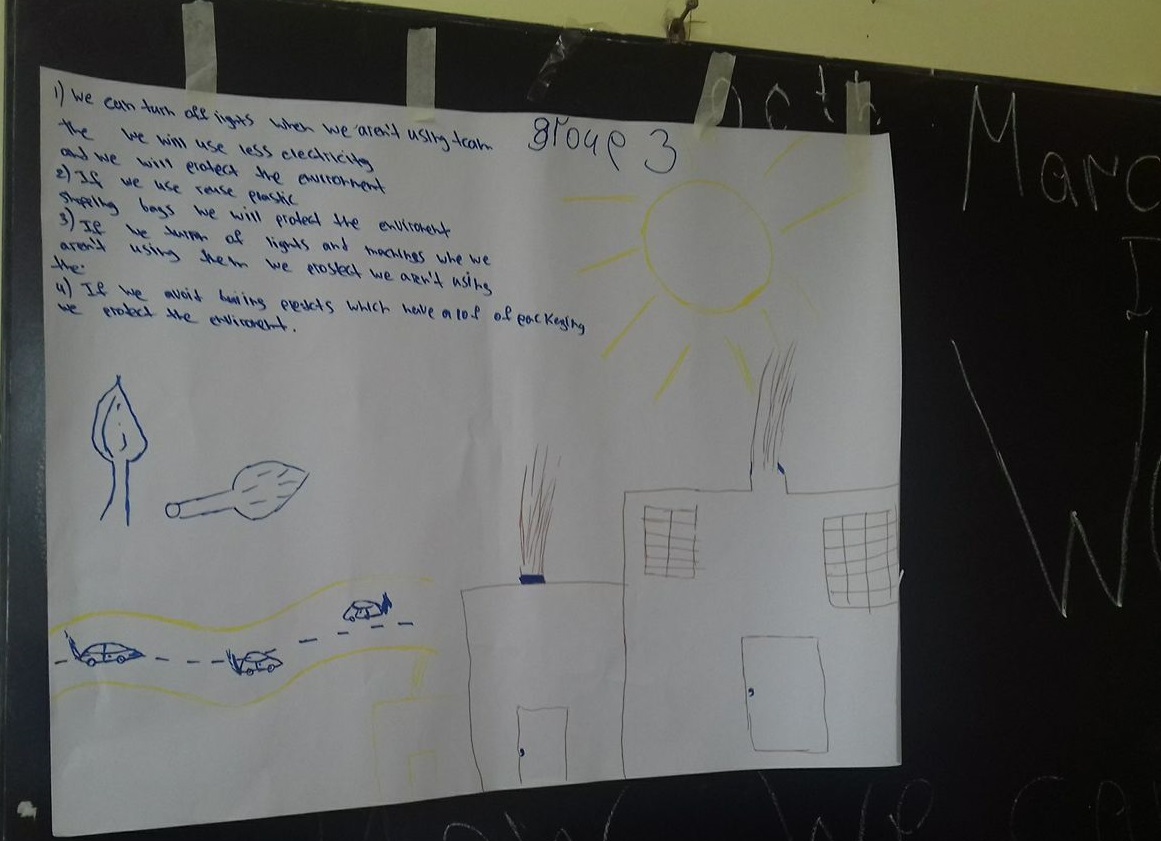 1) We can turn off lights when we aren't using team
the we will use less electricity
and we will protect the environment
2) If we use reuse plastic
shopping bags we will protect the enviroment
3) If we turnn of lights and machines whe we
aren't using them we prostect we aren't using
the.
4) If we avoid buiing prodcts which have a lot of packeging
we protect the enviroment.
group 3
Marc
W
We ca